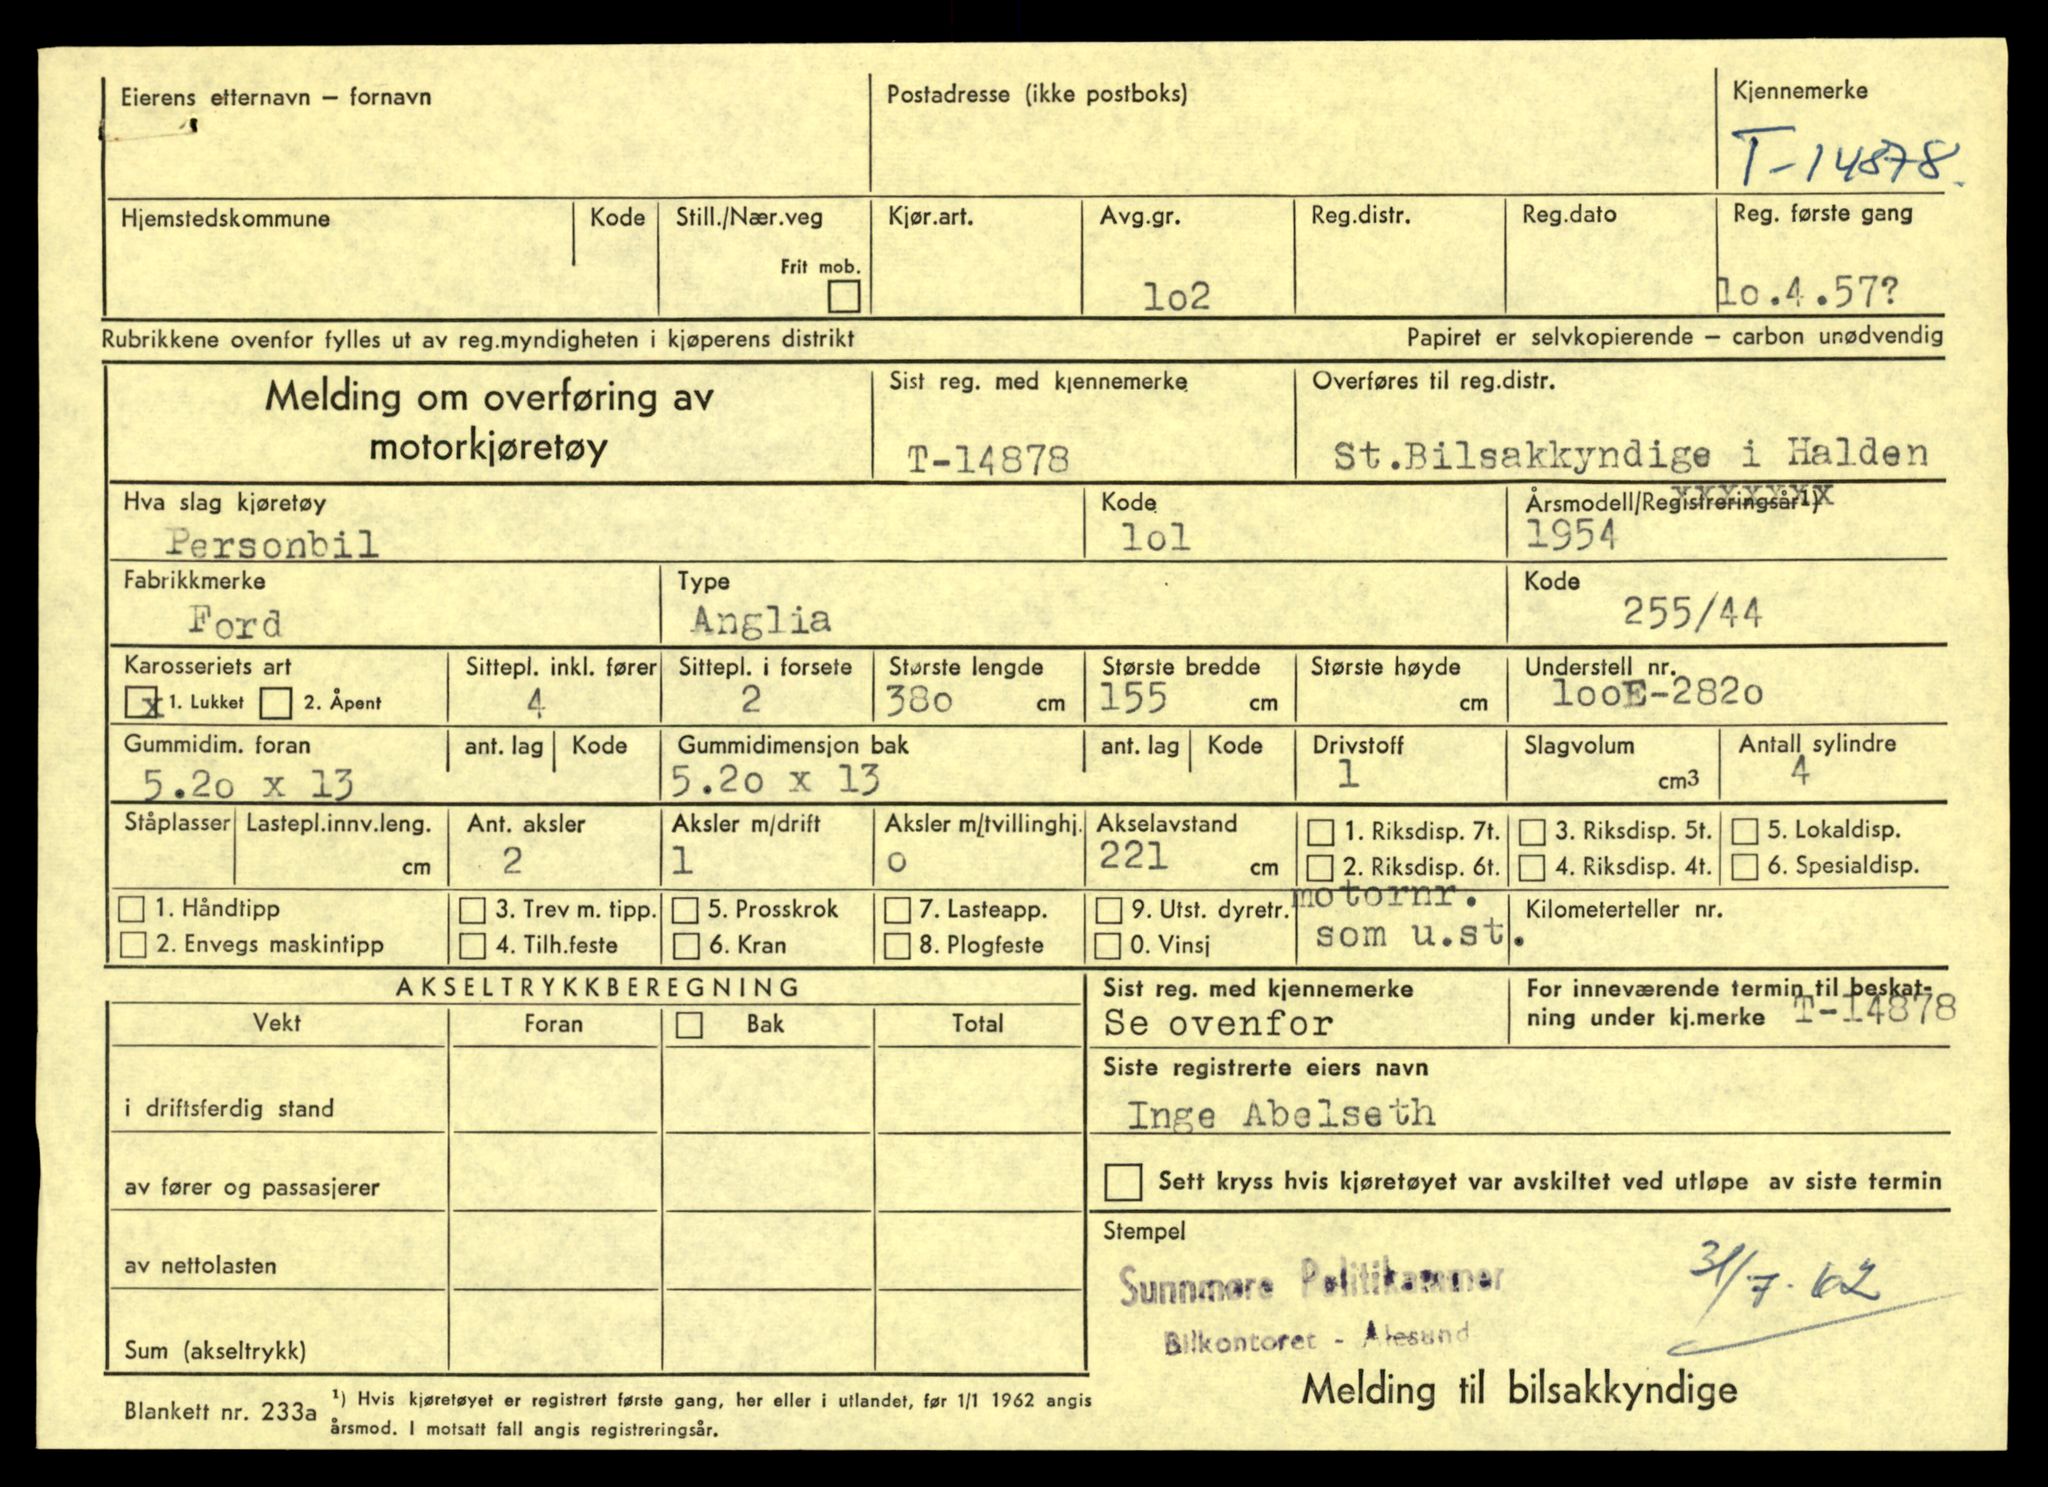 Eierens etternavn – fornavn
Postadresse (ikke postboks)
Kjennemerke
T-14878.
Hjemstedskommune
Kode
Still./Nær.veg
Frit mob.
Kjør.art.
Avg.gr.
lo2
Reg.distr.
Reg.dato
Reg. første gang
lo.4.57?
Rubrikkene ovenfor fylles ut av reg.myndigheten i kjøperens distrikt
Papiret er selvkopierende – carbon unødvendig
Melding om overføring av
motorkjøretøy
Sist reg. med kjennemerke
T-14878
Overføres til reg.distr.
St.Bilsakkyndige i Halden
Hva slag kjøretøy
Personbil
Kode
lol
Årsmodell/Registreringsår¹)
xxxxxxx
1954
Fabrikkmerke
Ford
Type
Anglia
Kode
255/44
Karosseriets art
x 1. Lukket 2. Åpent
Sittepl. inkl. fører
4
Sittepl. i forsete
2
Største lengde
38o cm
Største bredde
155 cm
Største høyde
cm
Understell nr.
looE-282o
Gummidim. foran
5.2o x 13
ant. lag
Kode
Gummidimensjon bak
5.2o x 13
ant. lag
Kode
Drivstoff
1
Slagvolum
cm3
Antall sylindre
4
Ståplasser
Lastepl.innv.leng.
cm
Ant. aksler
2
Aksler m/drift
1
Aksler m/tvillinghj.
o
Akselavstand
221 cm
1. Riksdisp. 7t.
2. Riksdisp. 6t.
3. Riksdisp. 5t.
4. Riksdisp. 4t.
5. Lokaldisp.
6. Spesialdisp.
1. Håndtipp
2. Envegs maskintipp
3. Trev m. tipp.
4. Tilh.feste
5. Prosskrok
6. Kran
7. Lasteapp.
8. Plogfeste
9. Utst. dyretr.
0. Vinsj
motornr.
som u.st.
Kilometerteller nr.
AKSELTRYKKBEREGNING
Vekt
Foran
Bak
Total
i driftsferdig stand
av fører og passasjerer
av nettolasten
Sum (akseltrykk)
Sist reg. med kjennemerke
Se ovenfor
For inneværende termin til beskat-
ning under kj.merke T-14878
Siste registrerte eiers navn
Inge Abelseth
Sett kryss hvis kjøretøyet var avskiltet ved utløpe av siste termin
Stempel
Sunnmøre Politikammer
Bilkontoret - Ålesund
31/7-62
Melding til bilsakkyndige
Blankett nr. 233a
¹) Hvis kjøretøyet er registrert første gang, her eller i utlandet, før 1/1 1962 angis
årsmod. I motsatt fall angis registreringsår.